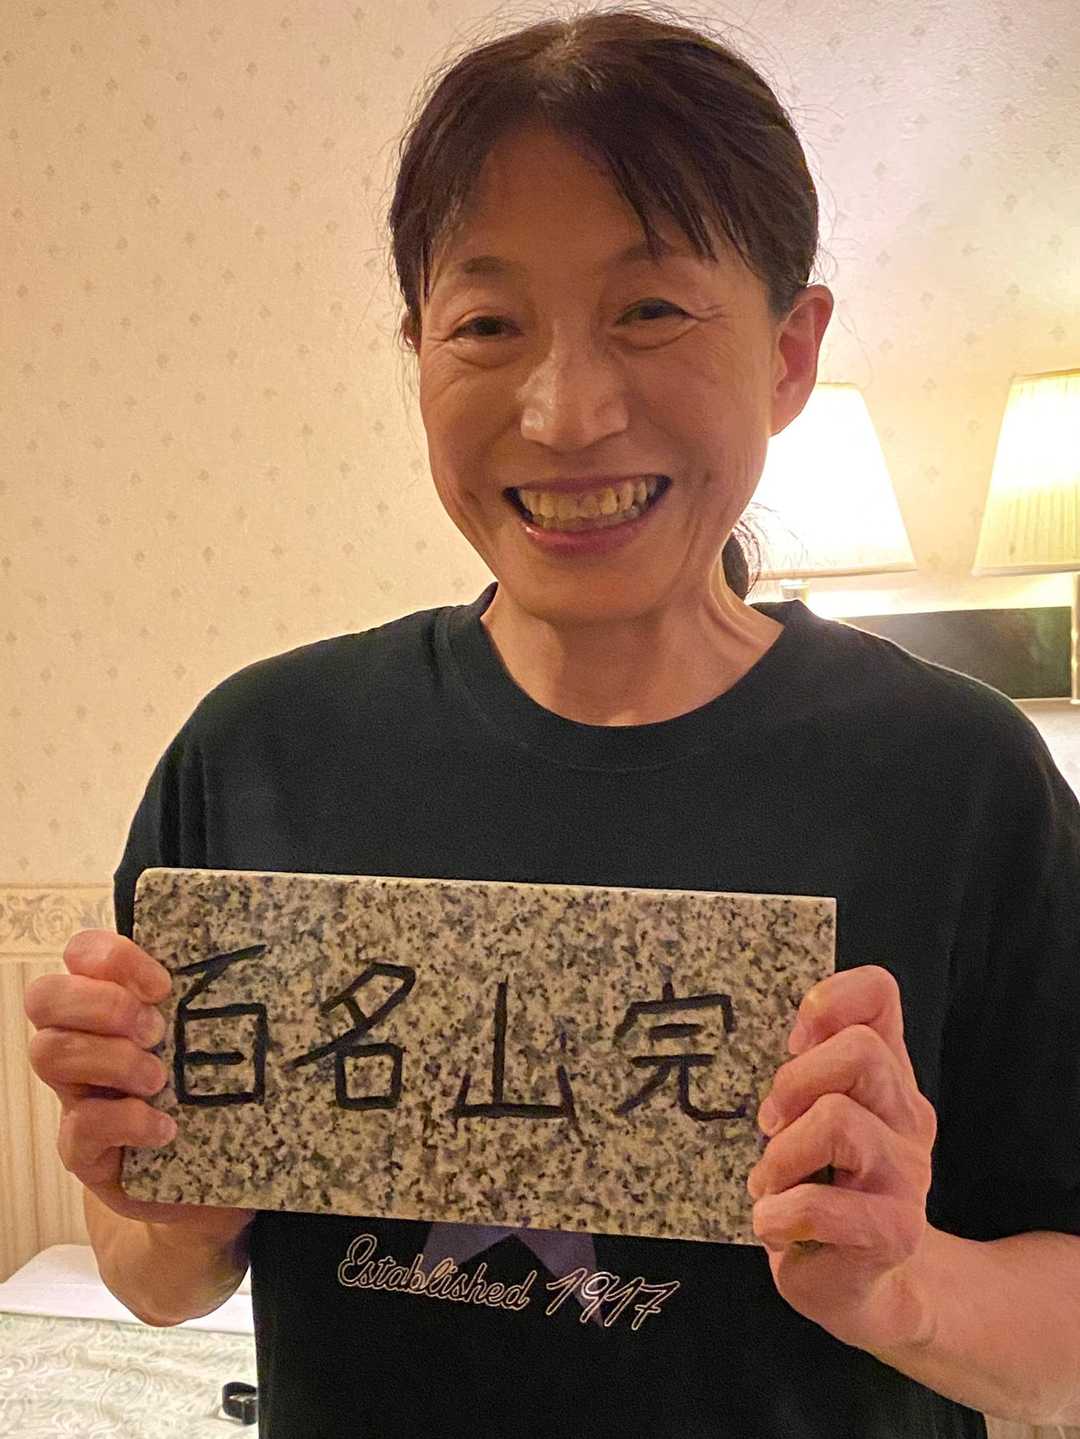 百名山完
Established 1917